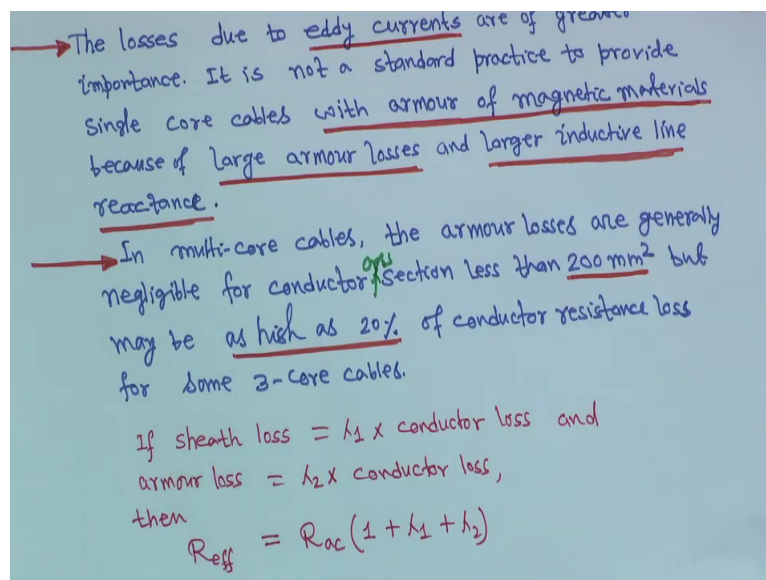 The losses due to eddy currents are of greater
importance. It is not a standard practice to provide
single core cables with armour of magnetic materials
because of large armour losses and larger inductive line
reactance.
In multi-core cables, the armour losses are generally
negligible for conductor section less than 200 mm² but
may be as high as 20% of conductor resistance loss
for some 3-core cables.
If sheath loss = λ1 x conductor loss and
armour loss = λ2 x conductor loss,
then
Reff = Rac (1 + λ1 + λ2)